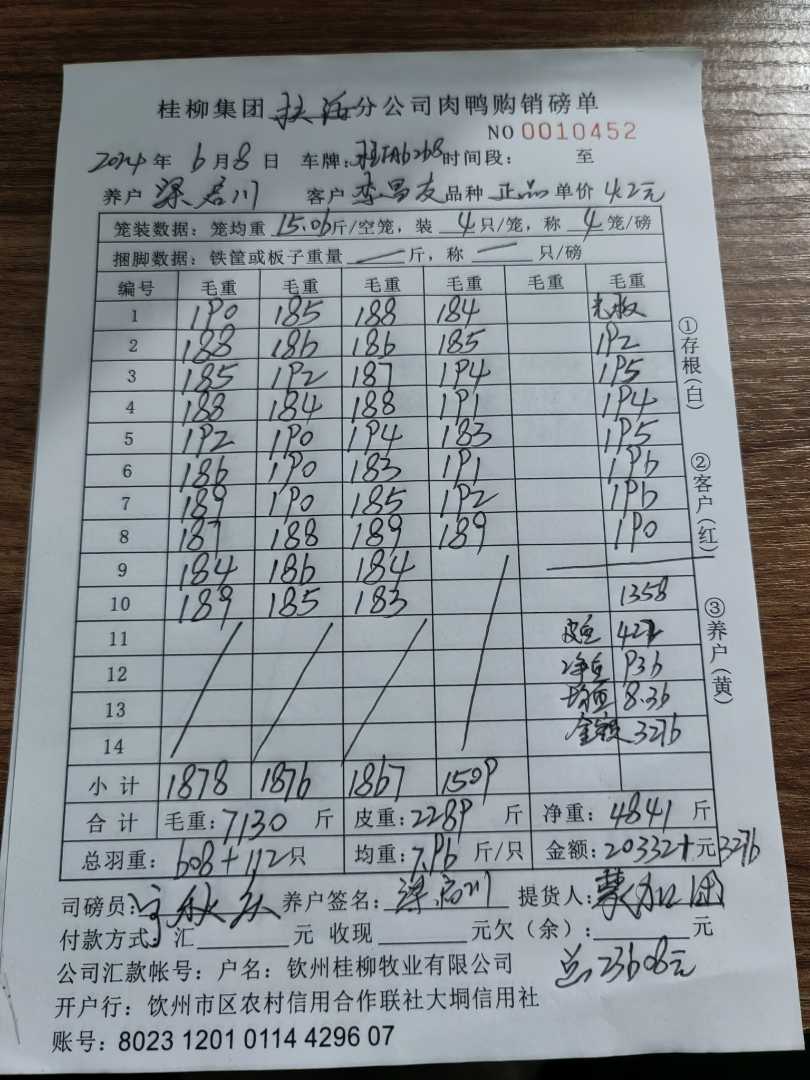 桂柳集团 分公司肉鸭购销磅单
NO 0010452
2024 年 6 月 8 日 车牌: 时间段: 至
养户 梁 川 客户 李昌友 品种 正品 单价 4.2元
笼装数据: 笼均重 15.06 斤/空笼, 装 4 只/笼, 称 4 笼/磅
捆脚数据: 铁筐或板子重量 — 斤, 称 — 只/磅
编号 毛重 毛重 毛重 毛重 毛重 毛重
1 190 185 188 184 光板
2 188 186 186 185 192
3 185 192 187 194 195
4 188 184 188 191 194
5 192 190 194 183 195
6 186 190 183 191 196
7 189 190 185 192 196
8 187 188 189 189 190
9 184 186 184
10 189 185 183 1358
11 皮重 422
12 净重 936
13 均重 8.36
14 金额 3276
小计 1878 1876 1867 1509
合计 毛重: 7130 斤 皮重: 2289 斤 净重: 4841 斤
总羽重: 608+112 只 均重: 7.96 斤/只 金额: 20332+ 元 3276
司磅员: 养户签名: 梁 川 提货人:
付款方式: 汇 元 收现 元欠(余): 元
公司汇款帐号: 户名: 钦州桂柳牧业有限公司 总23608元
开户行: 钦州市区农村信用合作联社大垌信用社
账号: 8023 1201 0114 4296 07
①存根(白)
②客户(红)
③养户(黄)